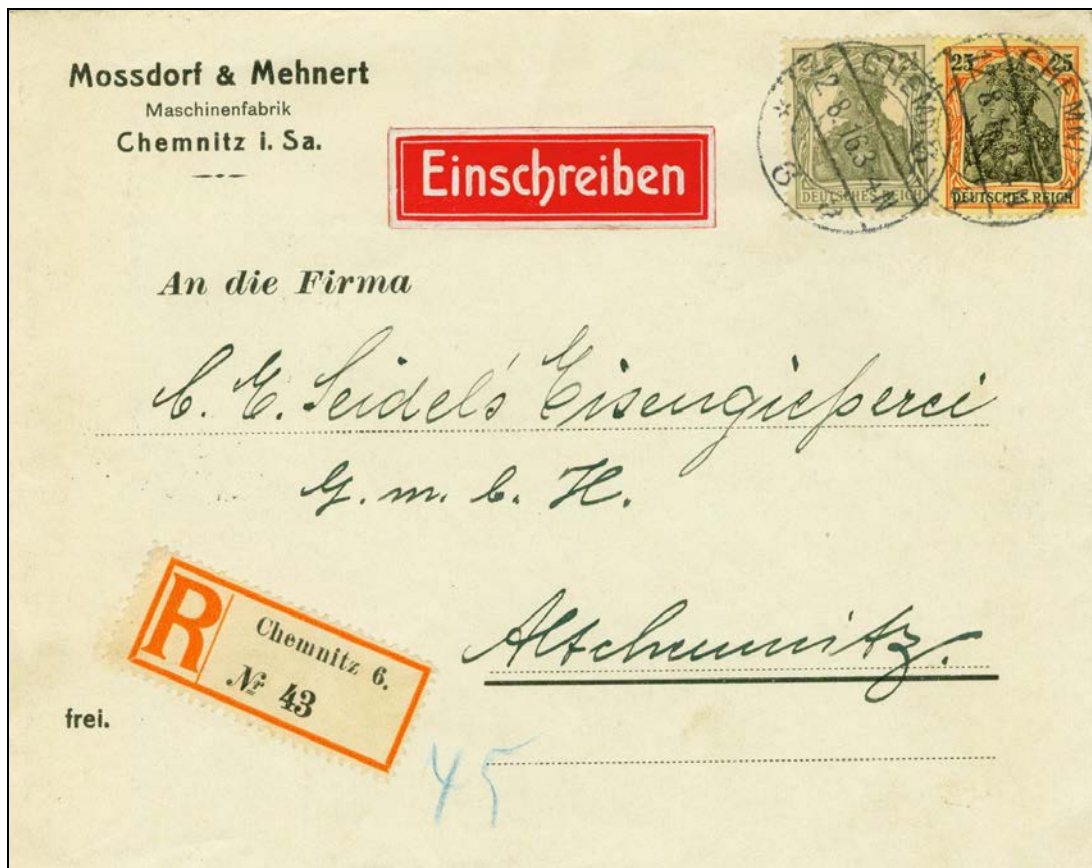 Mossdorf & Mehnert
Maschinenfabrik
Chemnitz i. Sa.
Einschreiben
25 25
DEUTSCHES REICH
DEUTSCHES REICH
CHEMNITZ
12.8.16.3-4N
An die Firma
C. E. Seidel's Eisengießerei
G. m. b. H.
R
Chemnitz 6.
№ 43
Altchemnitz.
frei.
45